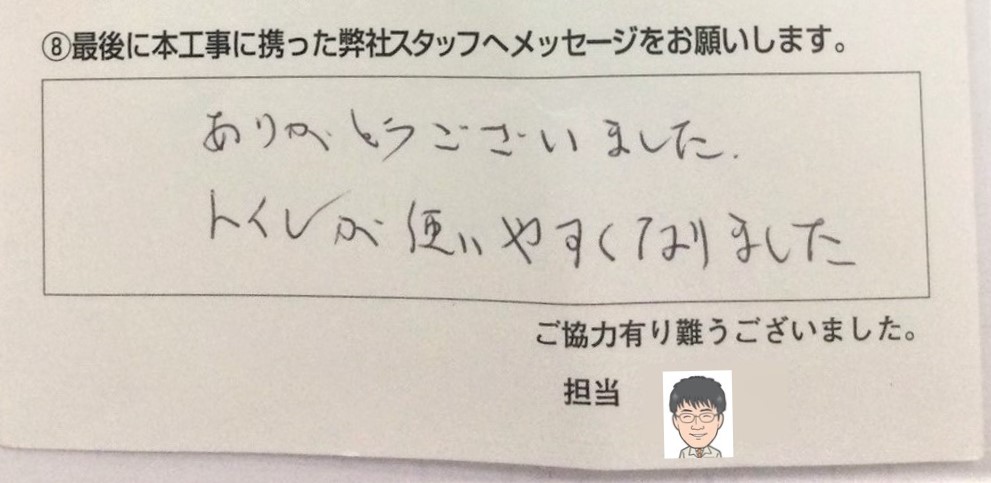 ⑧最後に本工事に携った弊社スタッフへメッセージをお願いします。
ありがとうございました.
トイレが使いやすくなりました
ご協力有り難うございました。
担当